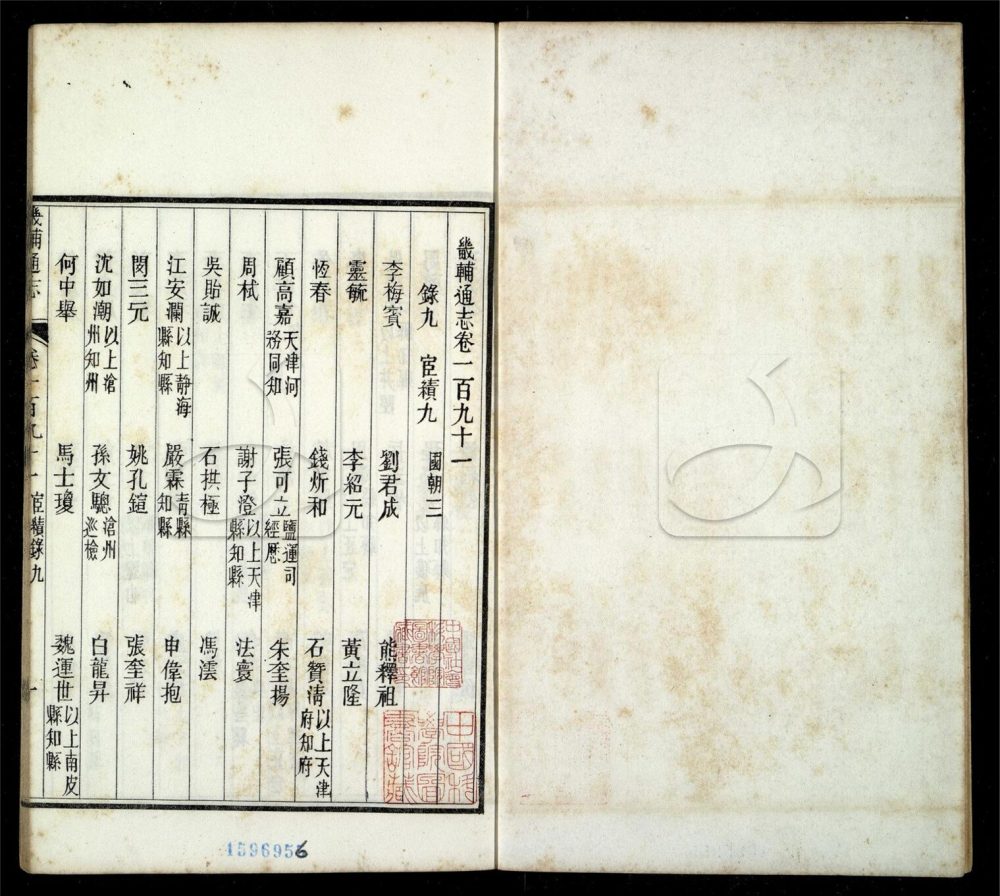 畿輔通志卷一百九十一
錄九　宦績九　國朝三
李梅賓　劉君成　熊釋祖
靈毓　李紹元　黃立隆
恆春　錢炘和　石贊淸以上天津府知府
顧高嘉天津河務同知　張可立鹽運司經歷　朱奎揚
周栻　謝子澄以上天津縣知縣　法寰
吳貽誠　石拱極　馮澐
江安瀾以上靜海縣知縣　嚴霖靑縣知縣　申偉抱
閔三元　姚孔鍹　張奎祥
沈如潮以上滄州知州　孫文驄滄州巡檢　白龍昇
何中舉　馬士瓊　魏運世以上南皮縣知縣
畿輔通志　卷一百九十一　宦績錄九　一
4596956